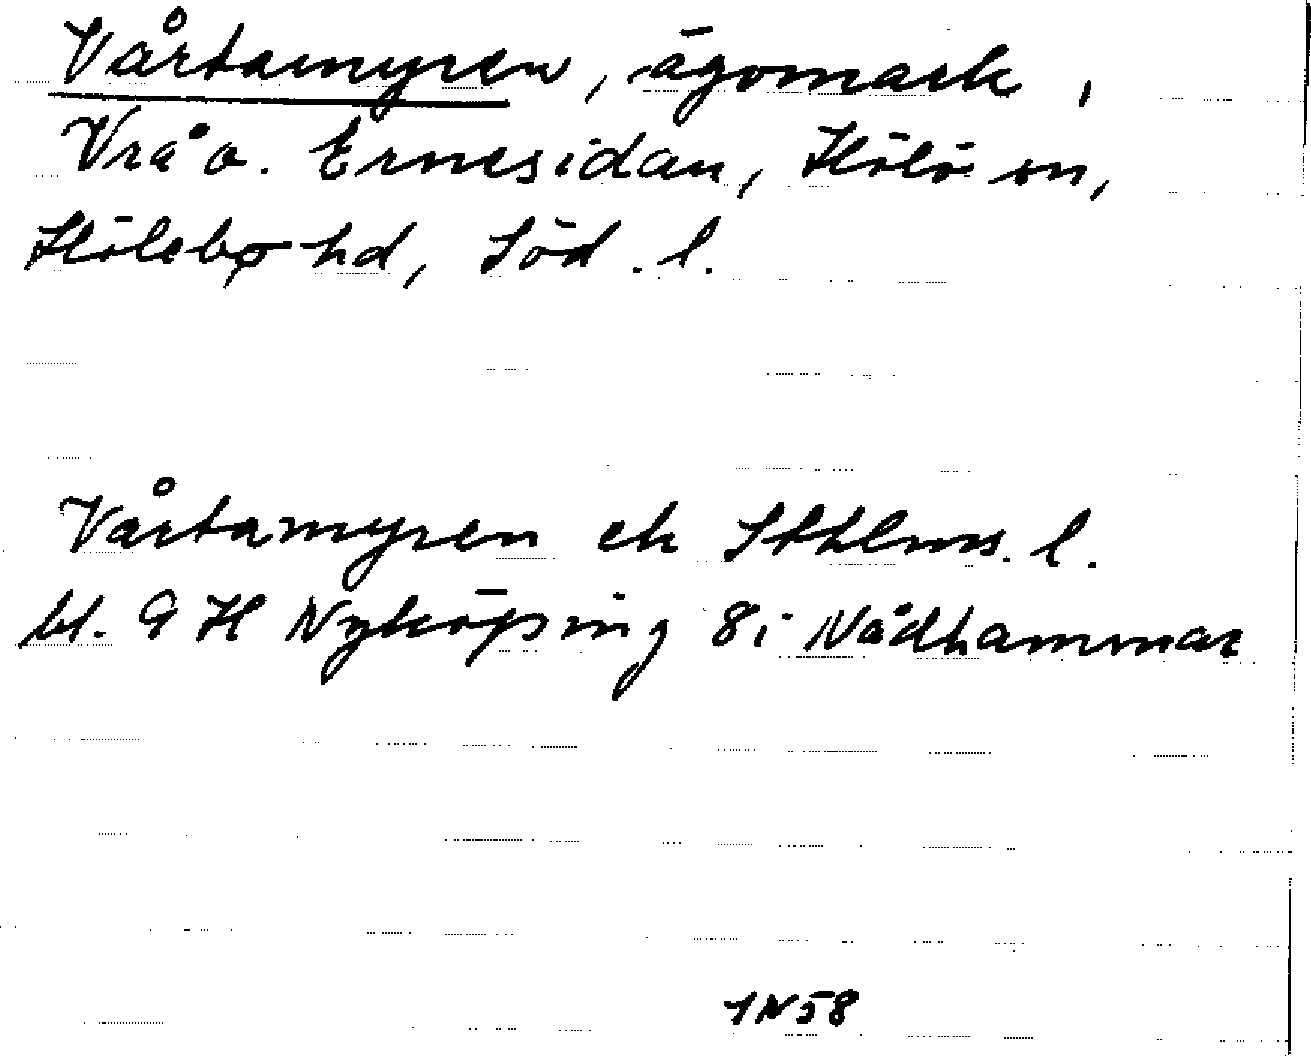 Vårtamyren, ägomark,
Vrå o. Ernesidan, Hölö sn,
Hölebo hd, Söd. l.
Vårtamyren ek Sthlms. l.
bl. 9 H Nyköping 8i Nådhammar
1N58